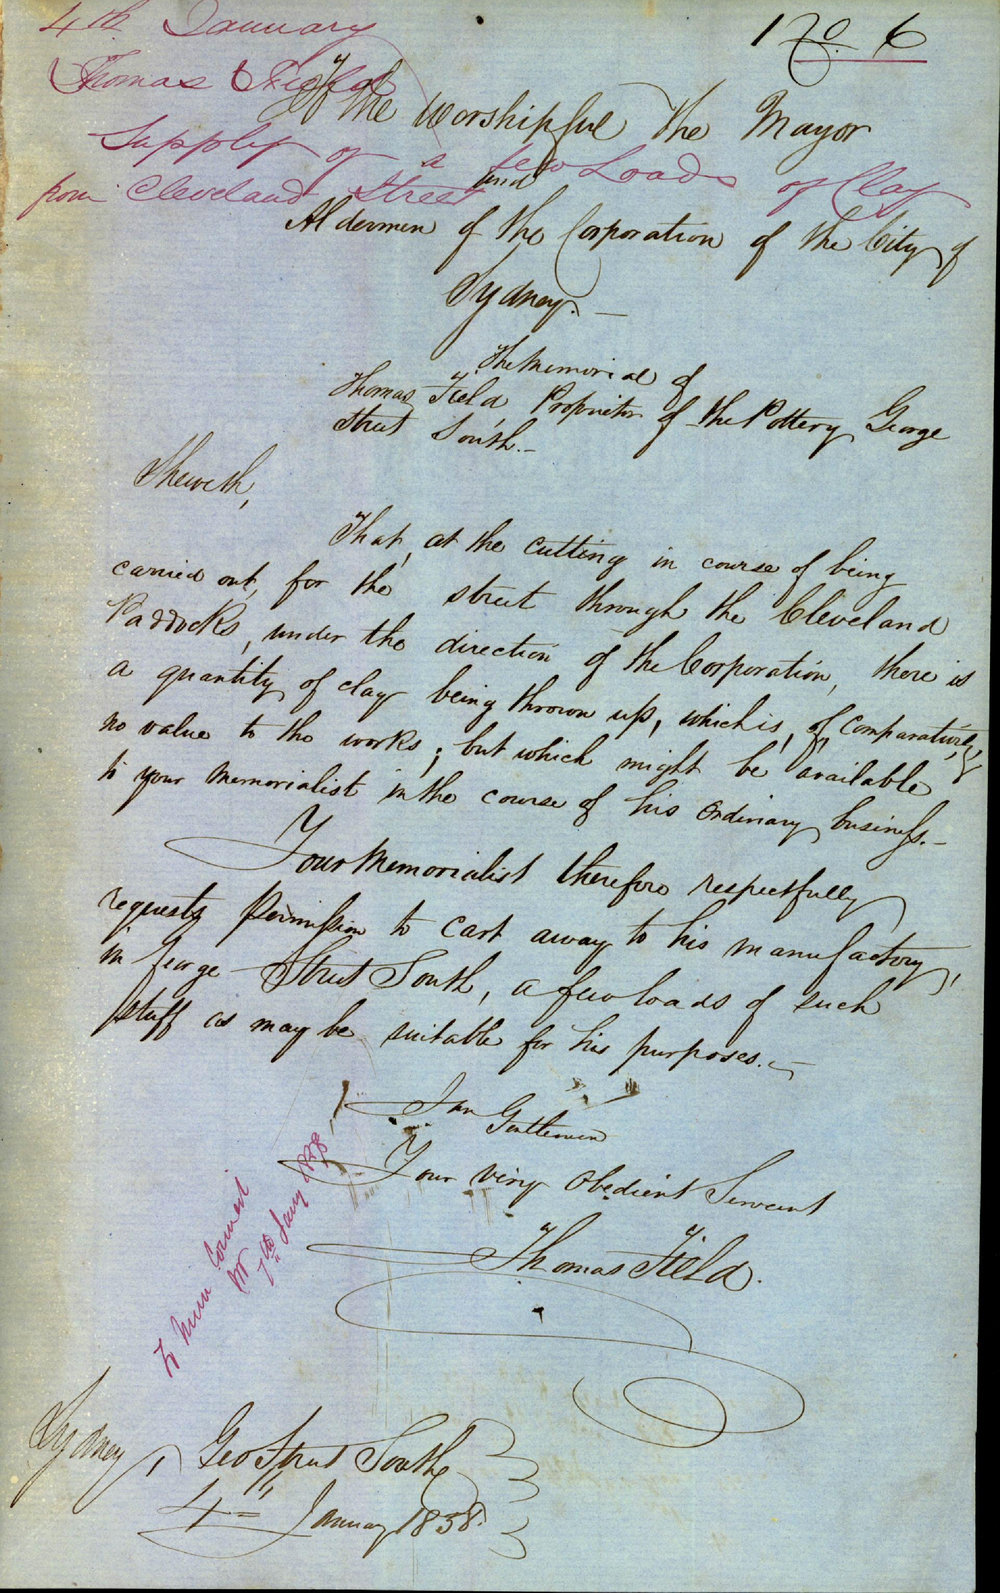 No. 6
4th January
Thomas Field
Supply of a few Loads of Clay
from Cleveland Street
To the Worshipful the Mayor
and
Aldermen of the Corporation of the City of
Sydney.—
The Memorial of
Thomas Field Proprietor of the Pottery George
Street South.—
Sheweth,
That, at the cutting in course of being
carried out, for the street through the Cleveland
Paddocks, under the direction of the Corporation, there is
a quantity of clay being thrown up, which is, of comparatively
no value to the works; but which might be available
to your Memorialist in the course of his ordinary business.—
Your Memorialist therefore respectfully
requests permission to cart away to his manufactory,
in George Street South, a few loads of such
stuff as may be suitable for his purposes.—
I am Gentlemen
Your very Obedient Servant
Thomas Field.
To Muni Council
7th Jany 1858
Sydney, Geo Street South
4th January 1858.